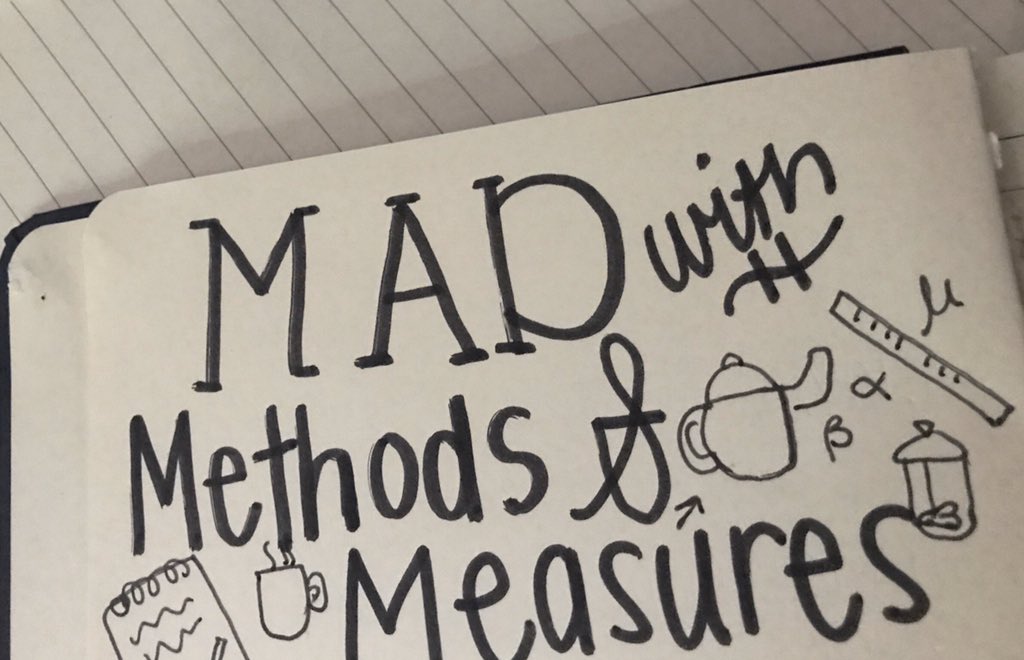 MAD with
μ
Methods &
α
β
Measures